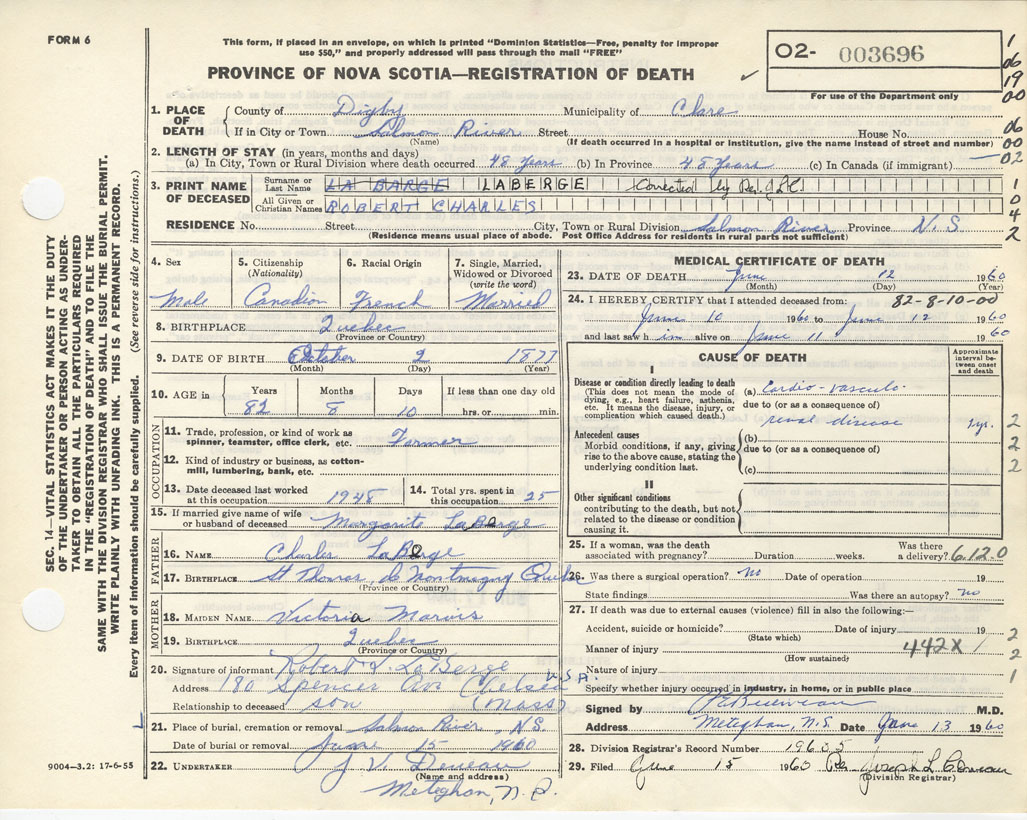 FORM 6
This form, if placed in an envelope, on which is printed "Dominion Statistics—Free, penalty for improper
use $50," and properly addressed will pass through the mail "FREE"
PROVINCE OF NOVA SCOTIA—REGISTRATION OF DEATH
02- 003696
For use of the Department only
1
06
19
00
06
00
02
1
0
4
2
SEC. 14—VITAL STATISTICS ACT MAKES IT THE DUTY
OF THE UNDERTAKER OR PERSON ACTING AS UNDER-
TAKER TO OBTAIN ALL THE PARTICULARS REQUIRED
IN THE "REGISTRATION OF DEATH" AND TO FILE THE
SAME WITH THE DIVISION REGISTRAR WHO SHALL ISSUE THE BURIAL PERMIT.
WRITE PLAINLY WITH UNFADING INK. THIS IS A PERMANENT RECORD.
Every item of information should be carefully supplied. (See reverse side for instructions.)
1. PLACE OF DEATH
County of Digby Municipality of Clare
If in City or Town Salmon River Street House No.
(Name) (If death occurred in a hospital or institution, give the name instead of street and number)
2. LENGTH OF STAY (in years, months and days)
(a) In City, Town or Rural Division where death occurred 48 years (b) In Province 48 years (c) In Canada (if immigrant) —
3. PRINT NAME OF DECEASED
Surname or Last Name LA BARGE LABERGE Corrected by
All Given or Christian Names ROBERT CHARLES
RESIDENCE No. Street City, Town or Rural Division Salmon River Province N.S.
(Residence means usual place of abode. Post Office Address for residents in rural parts not sufficient)
4. Sex
Male
5. Citizenship
(Nationality)
Canadian
6. Racial Origin
French
7. Single, Married,
Widowed or Divorced
(write the word)
Married
8. BIRTHPLACE Quebec
(Province or Country)
9. DATE OF BIRTH October 2 1877
(Month) (Day) (Year)
10. AGE in
Years Months Days If less than one day old
82 8 10 hrs. or min.
OCCUPATION
11. Trade, profession or kind of work as
spinner, teamster, office clerk, etc. Farmer
12. Kind of industry or business, as cotton-
mill, lumbering, bank, etc.
13. Date deceased last worked
at this occupation 1948
14. Total yrs. spent in
this occupation 25
15. If married give name of wife
or husband of deceased Margarite LaBerge
FATHER
16. NAME Charles LaBerge
17. BIRTHPLACE St Thomas, de Montmagny Quebec
(Province or Country)
MOTHER
18. MAIDEN NAME Victoria
19. BIRTHPLACE Quebec
(Province or Country)
20. Signature of informant Robert L. LaBerge
Address 180 Spencer Ave Chelsea U.S.A.
Relationship to deceased son (Mass)
21. Place of burial, cremation or removal Salmon River, N.S.
Date of burial or removal June 15 1960
22. UNDERTAKER J V. Deveau
(Name and address)
Meteghan, N.S.
9004—3.2: 17-6-55
MEDICAL CERTIFICATE OF DEATH
23. DATE OF DEATH June 12 1960
(Month) (Day) (Year)
24. I HEREBY CERTIFY that I attended deceased from: 82-8-10-00
June 10 1960 to June 12 1960
and last saw h im alive on June 11 1960
CAUSE OF DEATH
Approximate
interval be-
tween onset
and death
I
Disease or condition directly leading to death
(This does not mean the mode of
dying, e.g., heart failure, asthenia,
etc. It means the disease, injury, or
complication which caused death.)
(a) Cardio-vasculo-
due to (or as a consequence of)
renal disease 1 yr.
Antecedent causes
Morbid conditions, if any, giving
rise to the above cause, stating the
underlying condition last.
(b)
due to (or as a consequence of)
(c)
2
2
2
II
Other significant conditions
contributing to the death, but not
related to the disease or condition
causing it.
25. If a woman, was the death
associated with pregnancy? Duration weeks. Was there
a delivery? 6120
26. Was there a surgical operation? no Date of operation 19
State findings Was there an autopsy? no
27. If death was due to external causes (violence) fill in also the following:—
Accident, suicide or homicide? Date of injury 19
(State which)
Manner of injury 442X
(How sustained)
Nature of injury
2
2
1
Specify whether injury occurred in industry, in home, or in public place
Signed by M.D.
Address Meteghan, N.S. Date June 13 1960
28. Division Registrar's Record Number
29. Filed June 15 1960 Joseph L
(Division Registrar)